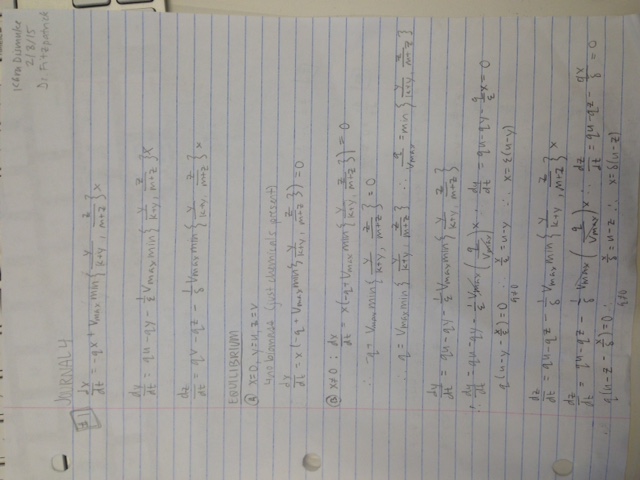 2/8/15
Dr. Fitzpatrick
JOURNAL 4
dx/dt = -qx + Vmax min{y/(k+y), z/(m+z)}x
dy/dt = qu - qy - 1/ε Vmax min{y/(k+y), z/(m+z)}x
dz/dt = qv - qz - 1/δ Vmax min{y/(k+y), z/(m+z)}x
EQUILIBRIUM
x=0, y=u, z=v
no biomass (just chemicals present)
dx/dt = x(-q + Vmax min{y/(k+y), z/(m+z)}) = 0
x≠0: dx/dt = x(-q + Vmax min{y/(k+y), z/(m+z)}) = 0
∴ -q + Vmax min{y/(k+y), z/(m+z)} = 0
∴ q = Vmax min{y/(k+y), z/(m+z)} ∴ q/Vmax = min{y/(k+y), z/(m+z)}
dy/dt = qu - qy - 1/ε Vmax min{y/(k+y), z/(m+z)}
∴ dy/dt = qu - qy - 1/ε Vmax(q/Vmax)x ∴ dy/dt = qu - qy - q/ε x = 0
q(u - y - x/ε) = 0 ∴ q≠0 x/ε = u - y ∴ x = ε(u-y)
dz/dt = qu - qz - 1/δ Vmax min{y/(k+y), z/(m+z)}x
dz/dt = qu - qz - 1/δ Vmax(q/Vmax)x ∴ dz/dt = qu - qz - qx/δ = 0
∴ q(u - z - x/δ) = 0 ∴ q≠0 x/δ = u - z ∴ x = δ(u-z)